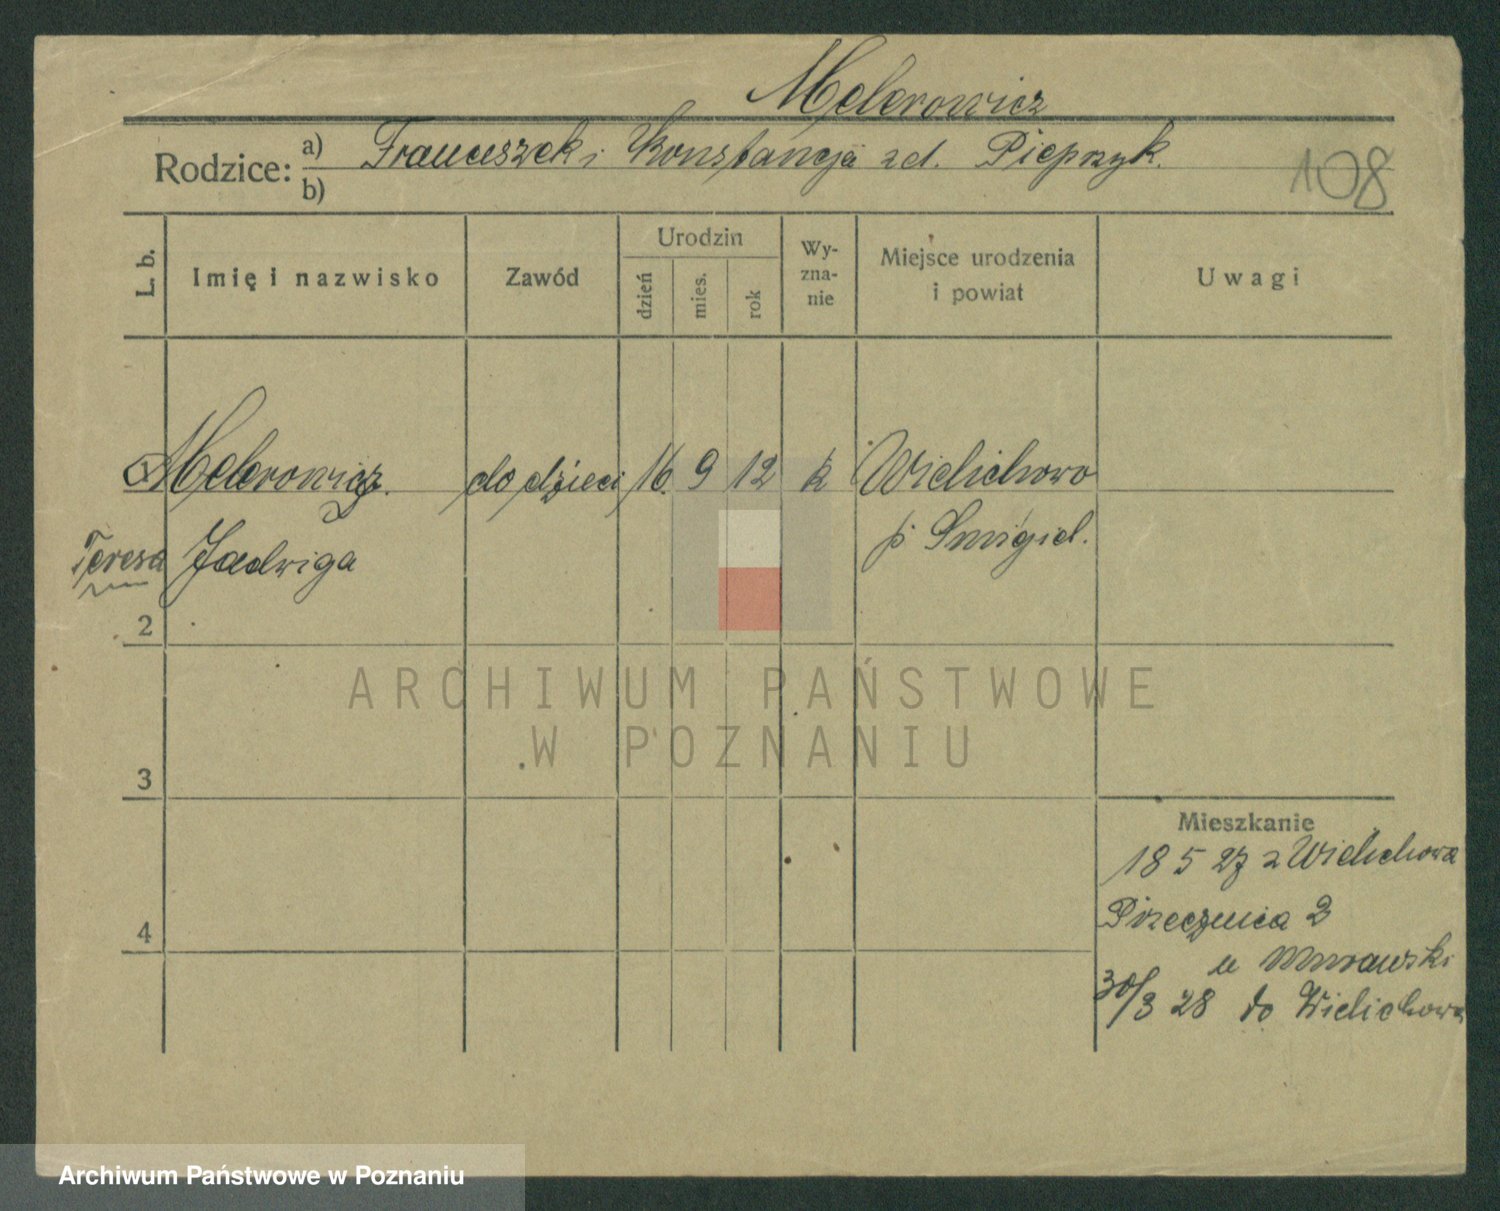 Melerowicz
Rodzice: a) Franciszek i Konstancja zd. Pieprzyk.
b)
108
L. b. Imię i nazwisko Zawód Urodzin dzień mies. rok Wy-zna-nie Miejsce urodzenia i powiat Uwagi
1 Melerowicz. do dzieci 16. 9 12 k Wielichowo
Teresa Jadwiga p. Śmigiel.
2
ARCHIWUM PAŃSTWOWE
W POZNANIU
3
Mieszkanie
18 5 27 z Wielichowa
4
Przecznica 2
u Murawski
30/3 28 do Wielichowa
Archiwum Państwowe w Poznaniu